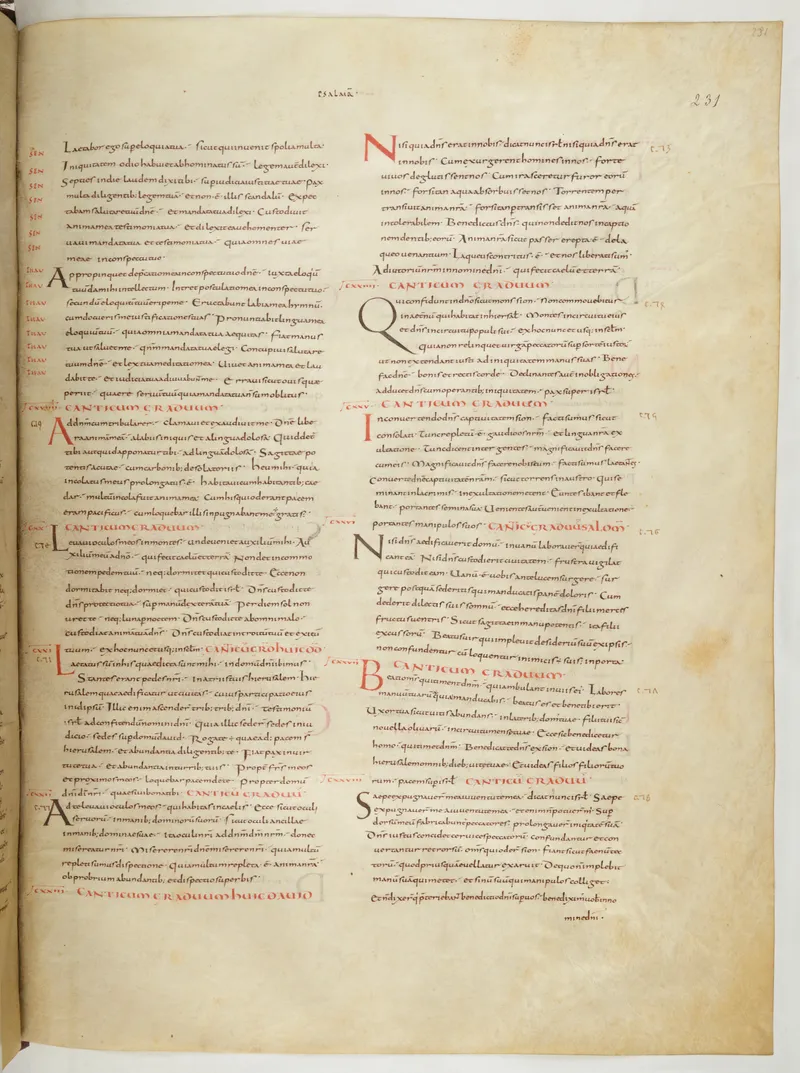 PSALMꝜ
231
Laetabor ego sup eloquia tua · sicut qui inuenit spolia multa
Iniquitatem odio habui et abhominatus sū · legem autē dilexi
Septies in die laudem dixi tibi · sup iudicia iustitiae tuae pax
multa diligentib; legem tuā · et non ē illis scandalū · Expec
tabam salutare tuū dnē · et mandata tua dilexi · Custodiuit
anima mea testimonia tua · et dilexit ea uehementer · ser
uaui mandata tua et testimonia tua · quia omnes uiae
meae in conspectu tuo
Appropinquet depcatio mea in conspectu tuo dnē · iuxta eloquiū
tuū da mihi intellectum · Intret postulatio mea in conspectu tuo
secundū eloquiū tuū eripe me · Eructabunt labia mea hymnū
cum docueris me iustificationes tuas · Pronuntiabit lingua mea
eloquiū tuū · quia omnia mandata tua aequitas · Fiat manus
tua ut saluet me · qnm mandata tua elegi · Concupiui salutare
tuum dnē · et lex tua meditatio mea · Uiuet anima mea et lau
dabit te · et iudicia tua adiuuabunt me · Erraui sicut ouis quae
periit · quaere seruū tuū quia mandata tua non sum oblitus
CXVIIII CANTICUM GRADUUM
Ad dnm cum tribularer · clamaui et exaudiuit me · Dnē libe
ra animā meā · a labiis iniquis et a lingua dolosa · Quid det̄
tibi aut quid apponatur tibi · ad linguā dolosā · Sagittae po
tentis acutae · cum carbonib; desolatoriis · heu mihi quia
incolatus meus prolongatus ē · habitaui cum habitantib; ce
dar · multū incola fuit anima mea · Cum his qui oderant pacem
eram pacificus · cum loquebar illis inpugnabant me gratis
CXX CANTICUM GRADUUM
Leuaui oculos meos in montes · unde ueniet auxiliū mihi · Au
xiliū meū a dnō · qui fecit caelū et terrā · Non det in commo
tionem pedem tuū · neq; dormitet qui custodit te · Ecce non
dormitabit neq; dormiet · qui custodit isrl · Dns custodit te
dns protectio tua · sup manū dexterā tuā · Per diem sol non
uret te · neq; luna p noctem · Dns custodit te ab omni malo ·
custodiat animā tuā dns · Dns custodiat introitū tuū et exitū
tuum · ex hoc nunc et usq; in sclm · CANTICŪ GRD HUIC DD
Laetatus sū in his quae dicta sunt mihi · in domū dnī ibimus
Stantes erant pedes nri · in atriis tuis hierusalem · hie
rusalem quae aedificatur ut ciuitas · cuius participatio eius
in idipsū · Illic enim ascender trib; trib; dnī · testimoniū
isrl ad confitendū nomini dnī · Quia illic seder sedes in iu
dicio · sedes sup domū dauid · Rogate quae ad pacem s
hierusalem · et abundantia diligentib; te · Fiat pax in uir
tute tua · et abundantia in turrib; tuis · Propt frs meos
et proximos meos · loquebar pacem de te · Propter domū
dnī dī nri · quaesiui bona tibi · CANTICŪ GRADUŪ
Ad te leuaui oculos meos · qui habitas in caelis · Ecce sicut oculi
seruorū · in manib; dominorū suorū · Sicut oculi ancillae
in manib; dominae suae · ita oculi nri ad dnm dm nrm · donec
misereatur nri · Miserere nri dnē miserere nri · quia multū
repleti sumus dispectione · Quia multum repleta ē anima nra
obprobrium abundantib; et dispectio superbis
CXXIII CANTICUM GRADUUM HUIC DAUID
Nisi quia dns erat in nobis dicat nunc isrl · nisi quia dns erat
in nobis · Cum exurgerent homines in nos · forte
uiuos degluttissent nos · Cum irasceretur furor eorū
in nos · forsitan aqua absorbuisset nos · Torrentem per
transiuit anima nra · forsitan ptransisset anima nra aquā
intolerabilem · Benedictus dns · qui non dedit nos in captio
nem dentib; eorū · Anima nra sicut passer erepta ē · de la
queo uenantium · Laqueus contritus ē · et nos liberati sum
Adiutoriū nrm in nomine dnī · qui fecit caelū et terrā ·
CXXIIII CANTICUM GRADUUM
Qui confidunt in dnō sicut mons sion · non commouebitur
in aeternū qui habitat in hierslm · Montes in circuitu eius
et dns in circuitu populi sui · ex hoc nunc et usq; in sclm
Quia non relinquet uirgā peccatorū sup sortē iustorū
ut non extendant iusti · ad iniquitatem manus suas · Bene
fac dnē · bonis et rectis corde · Declinantes autē in obligationes
adducet dns cum operantib; iniquitatem · pax super isrl
CXXV CANTICUM GRADUUM
In conuertendo dns captiuitatem sion · facti sumus sicut
consolati · Tunc repletū ē gaudio os nrm · et lingua nra ex
ultatione · Tunc dicent inter gentes · magnificauit dns facere
cum eis · Magnificauit dns facere nobiscum · facti sumus laetantes
Conuerte dnē captiuitatē nrām · sicut torrens in austro · Qui se
minant in lacrimis · in exultatione metent · Euntes ibant et fle
bant · portantes semina sua · Uenientes aū uenient in exultatione
portantes manipulos suos · CANTC GRADUU SALOM
Nisi dns aedificauerit domū · in uanū laborauer qui aedifi
cant eā · Nisi dns custodierit ciuitatem · frustra uigilat
qui custodit eam · Uanū ē uobis ante lucem surgere · sur
gere postquā sederitis qui manducatis panē doloris · Cum
dederit dilectis suis somnū · ecce hereditas dnī filii merces
fructus uentris · Sicut sagittae in manu potentis · ita filii
excussorū · Beatus uir qui impleuit desideriū suū ex ipsis
non confundentur cū loquentur inimicis suis in porta ·
CANTICUM GRADUUM
Beati omīs qui timent dnm · qui ambulant in uiis ei · Labores
manuū tuarū quia manducabis · beatus es et bene tibi erit
Uxor tua sicut uitis abundans · in laterib; domus tuae · filii tui sic
nouella oliuarū · in circuitu mensae tuae · Ecce sic benedicetur
homo · qui timet dnm · Benedicat te dns ex sion · et uideas bona
hierusalem omnib; dieb; uitae tuae · Et uideas filios filiorū tuo
rum · pacem sup isrl · CANTICŪ GRADUŪ
Saepe expugnauer me a iuuentute mea · dicat nunc isrl · Saepe
expugnauer me a iuuentute mea · etenim n potuer mi · Sup
dorsū meū fabricabunt peccatores · prolongauer iniqtatē suā
Dns iustus concidet ceruices peccatorū · confundantur et con
uertantur retrorsū · oms qui oder sion · Fiant sicut faenū tec
torū · quod priusquā euellatur exaruit · De quo n implebit
manū suā qui metet · et sinū suū qui manipulos colliget
Et n dixer q pteriebant benedictio dnī sup uos · benediximus uob in no
mine dnī ·